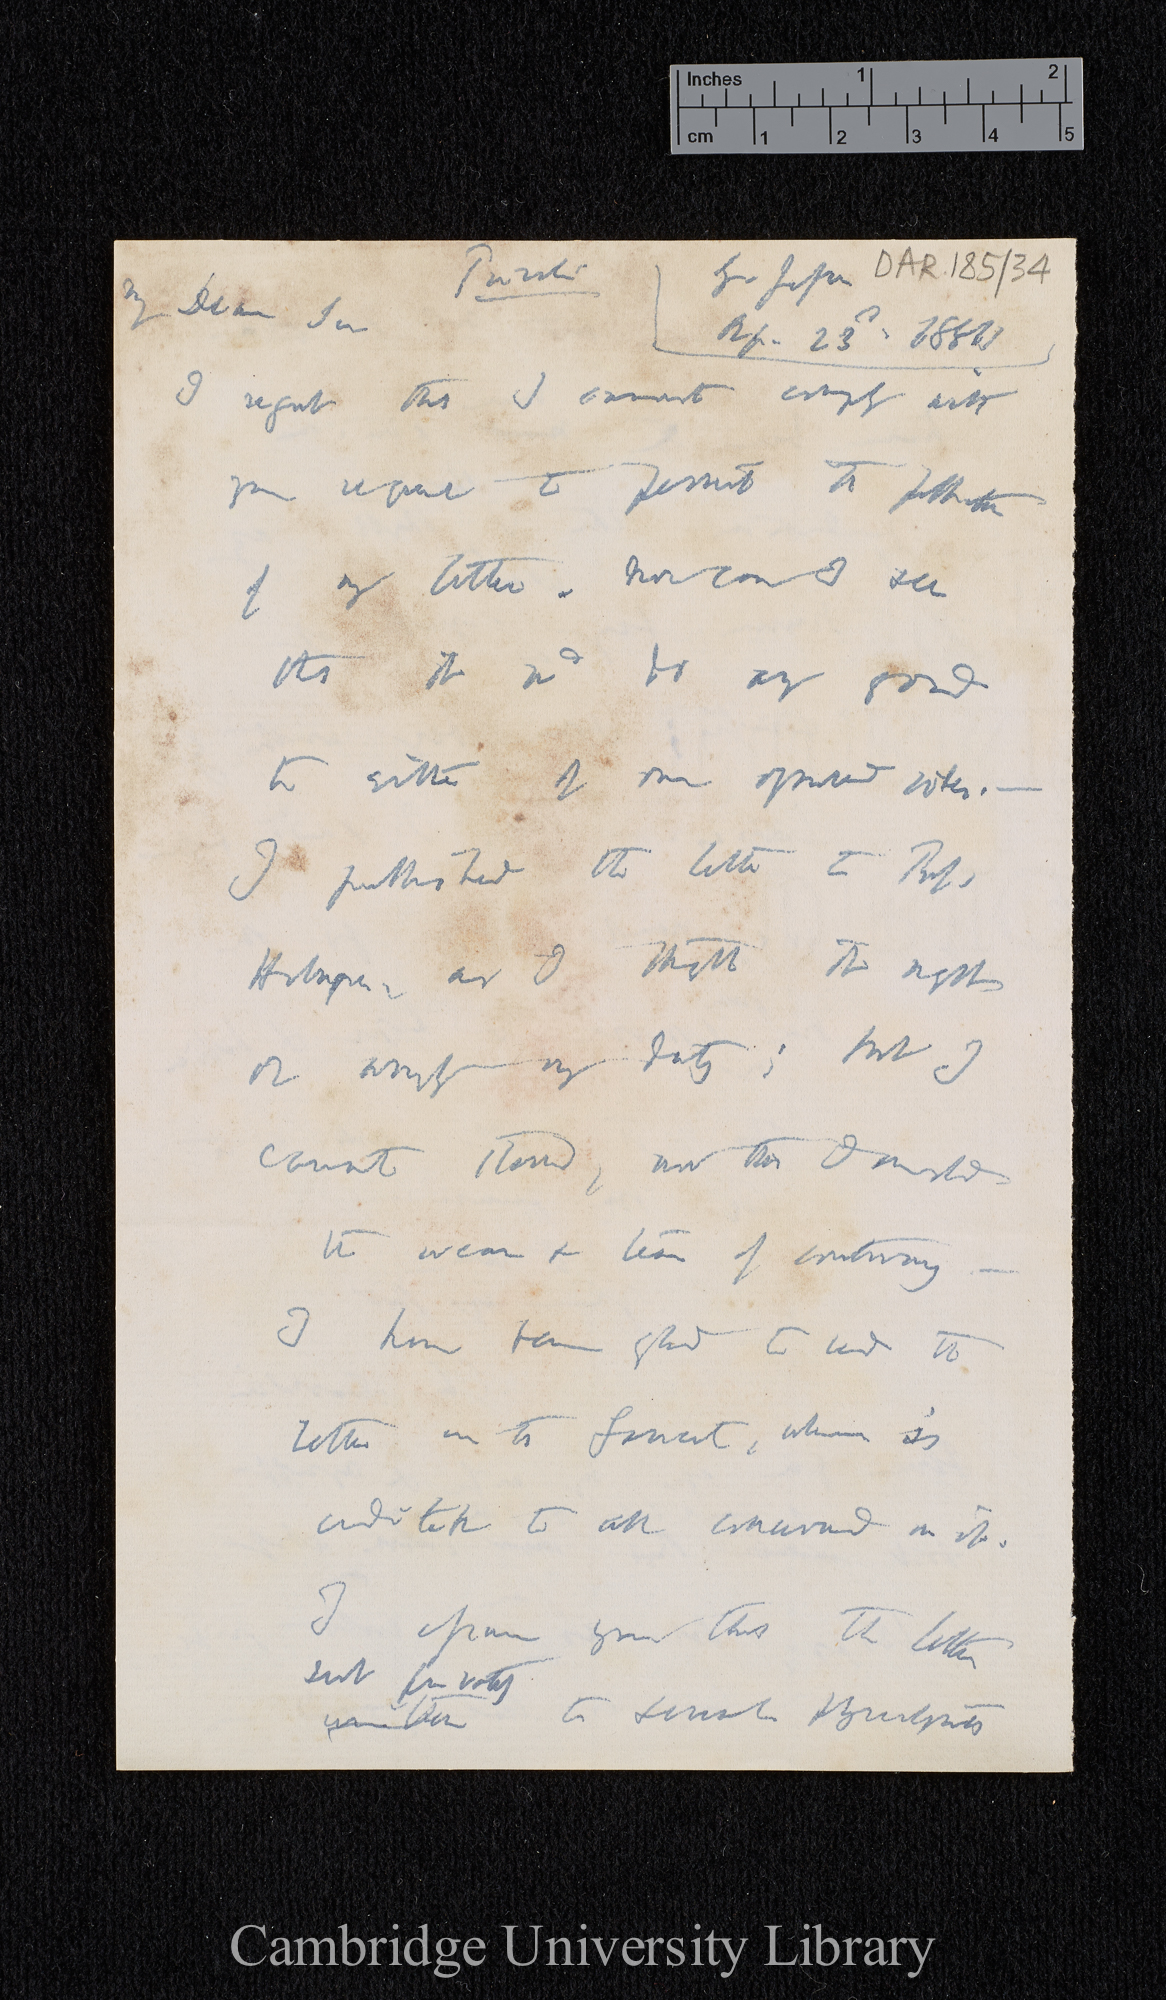 Inches 1 2
cm 1 2 3 4 5
DAR.185/34
Private
G. Jesse
Ap. 23d. 1881
My Dear Sir
I regret that I cannot comply with
your request to permit the publication
of my letter. Nor can I see
that it wd do any good
to either of our opposed sides.—
I published the letter to Prof.
Holmgren, as I thought it right
or simply my duty; but I
cannot stand, nor that I should
the wear & tear of controversy —
I have been glad to read the
letter in the , which is
creditable to all concerned in it.
I assure you that the letter
sent privately
written to several Newspapers
Cambridge University Library